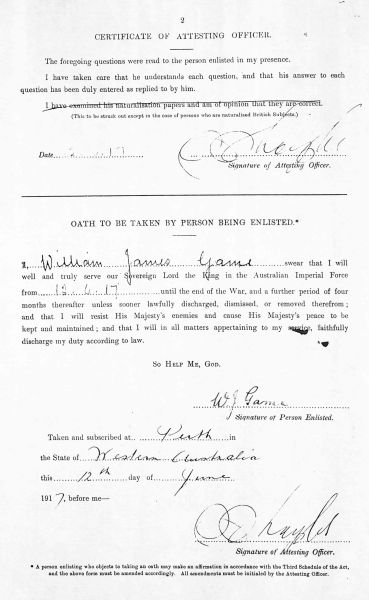 2
CERTIFICATE OF ATTESTING OFFICER.
The foregoing questions were read to the person enlisted in my presence.
I have taken care that he understands each question, and that his answer to each
question has been duly entered as replied to by him.
I have examined his naturalisation papers and am of opinion that they are correct.
(This to be struck out except in the case of persons who are naturalised British Subjects.)
Date
Signature of Attesting Officer.
OATH TO BE TAKEN BY PERSON BEING ENLISTED.*
I, William James Game swear that I will
well and truly serve our Sovereign Lord the King in the Australian Imperial Force
from 12.6.17 until the end of the War, and a further period of four
months thereafter unless sooner lawfully discharged, dismissed, or removed therefrom;
and that I will resist His Majesty's enemies and cause His Majesty's peace to be
kept and maintained; and that I will in all matters appertaining to my service, faithfully
discharge my duty according to law.
SO HELP ME, GOD.
W J Game
Signature of Person Enlisted.
Taken and subscribed at Perth in
the State of Western Australia
this 12th day of June
1917, before me—
Signature of Attesting Officer.
* A person enlisting who objects to taking an oath may make an affirmation in accordance with the Third Schedule of the Act,
and the above form must be amended accordingly. All amendments must be initialed by the Attesting Officer.